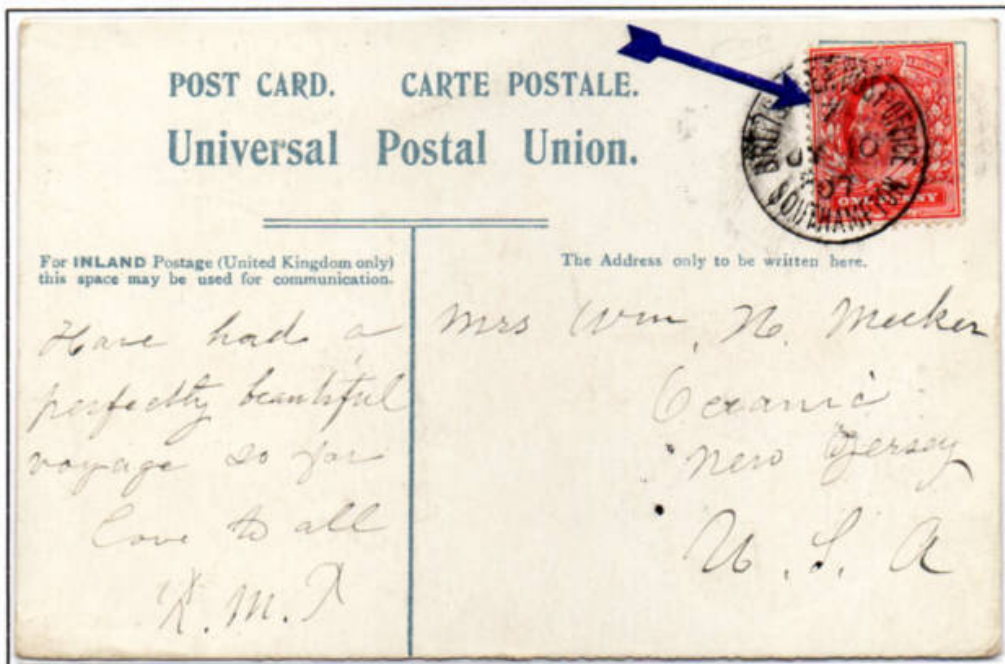 POST CARD. CARTE POSTALE.
Universal Postal Union.
POST OFFICE
10
07
SOUTHAMPTON
ONE PENNY
For INLAND Postage (United Kingdom only)
this space may be used for communication.
The Address only to be written here.
Have had a
perfectly beautiful
voyage so far
Love to all
Mrs Wm. N. Meeker
Oceanic
New Jersey
U. S. A